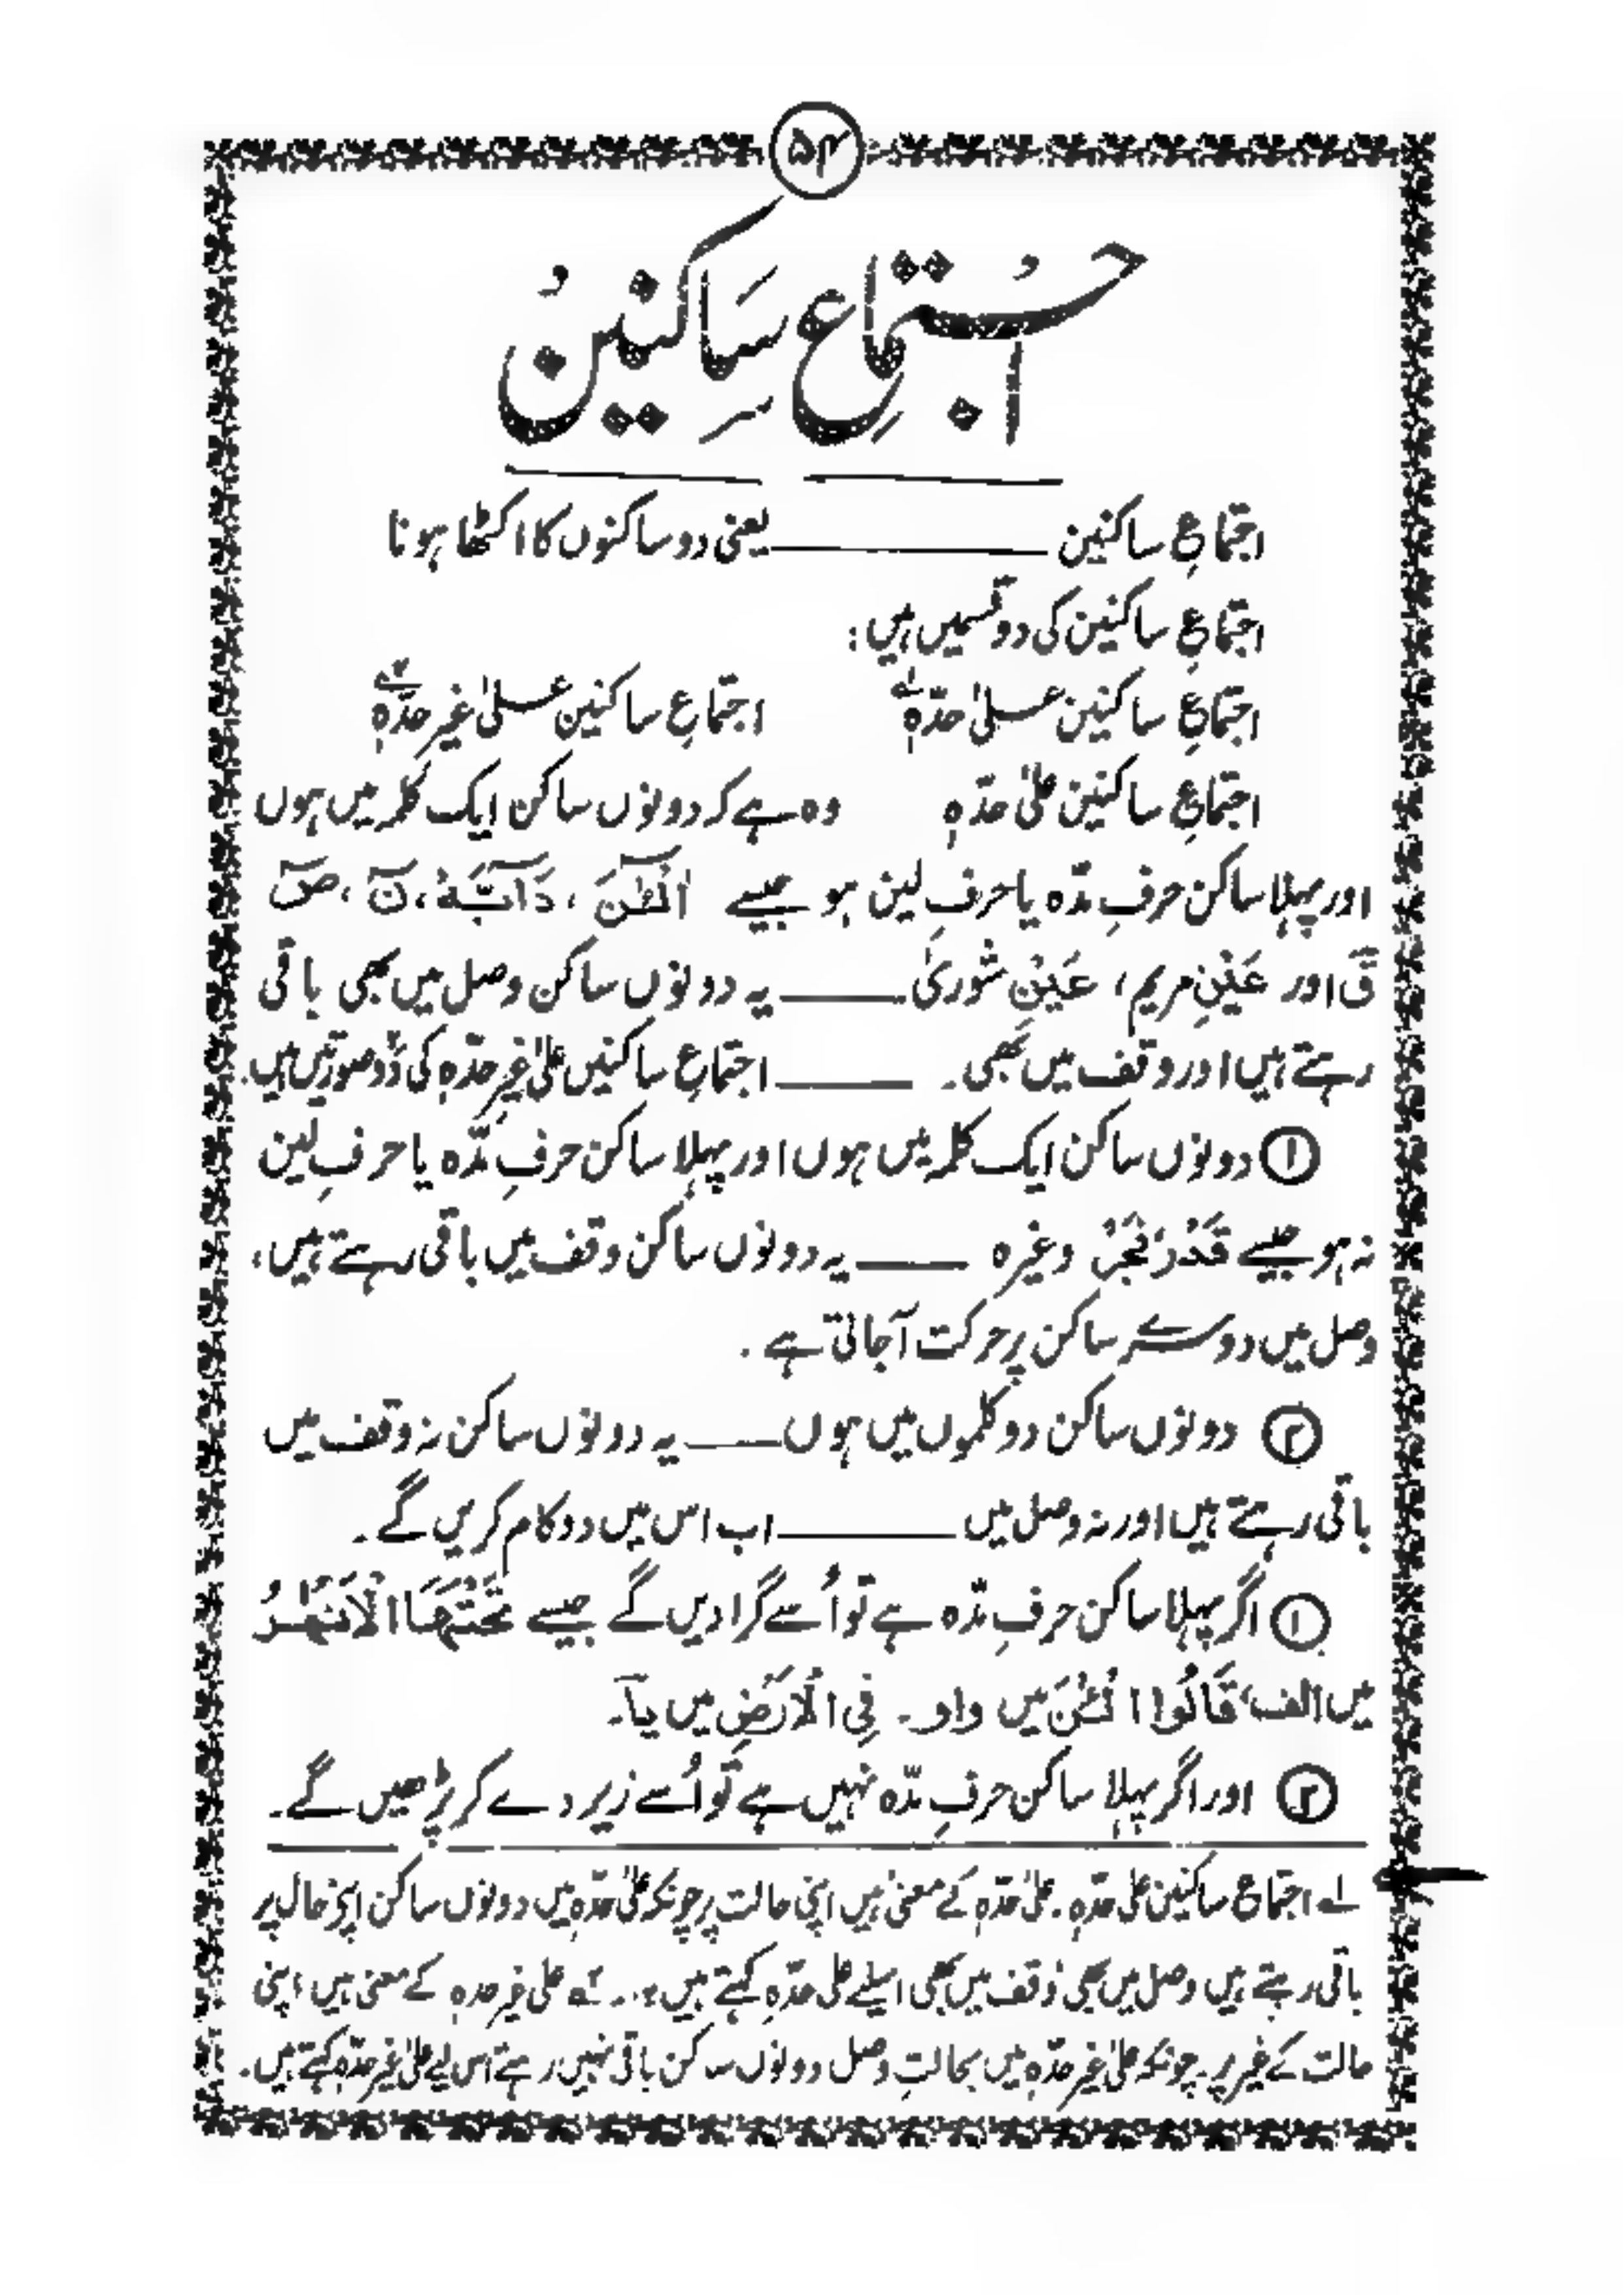 ۵۴
اجتماعِ ساکنین
اجتماعِ ساکنین ــــــــ یعنی دو ساکنوں کا اکٹھا ہونا
اجتماعِ ساکنین کی دو قسمیں ہیں :
اجتماعِ ساکنین علیٰ حدّہٖ ؎۱ اجتماعِ ساکنین علیٰ غیر حدّہٖ ؎۲
اجتماعِ ساکنین علیٰ حدّہٖ وہ ہے کہ دونوں ساکن ایک کلمہ میں ہوں
اور پہلا ساکن حرفِ مدّہ یا حرفِ لین ہو جیسے آلْـٰٔنَ ، دَآبَّةٍ ، نٓ ، صٓ
قٓ اور عَیْنِ مریم ، عَیْنِ شوریٰ ــــــ یہ دونوں ساکن وصل میں بھی باقی
رہتے ہیں اور وقف میں بھی ۔ ــــــ اجتماعِ ساکنین علیٰ غیرِ حدّہٖ کی دُو صورتیں ہیں۔
① دونوں ساکن ایک کلمہ میں ہوں اور پہلا ساکن حرفِ مدّہ یا حرفِ لین
نہ ہو جیسے قَدْرْ ، فَجْرْ وغیرہ ــــــ یہ دونوں ساکن وقف میں باقی رہتے ہیں،
وصل میں دوسرے ساکن پر حرکت آجاتی ہے ۔
② دونوں ساکن دو کلموں میں ہوں ــــــ یہ دونوں ساکن نہ وقف میں
باقی رہتے ہیں اور نہ وصل میں ــــــ اب اس میں دو کام کریں گے ۔
① اگر پہلا ساکن حرفِ مدّہ ہے تو اُسے گرا دیں گے جیسے تَحْتَهَا الْاَنْهٰرُ
میں الف، قَالُوا الْـٰٔنَ میں واو ۔ فِی الْاَرْضِ میں یآ۔
② اور اگر پہلا ساکن حرفِ مدّہ نہیں ہے تو اُسے زیر دے کر پڑھیں گے ۔
؎۱ اجتماعِ ساکنین علیٰ حدّہٖ ۔ علیٰ حدّہٖ کے معنیٰ ہیں اپنی حالت پر چونکہ علیٰ حدّہٖ میں دونوں ساکن اپنے حال پر
باقی رہتے ہیں وصل میں بھی وقف میں بھی اسلئے علیٰ حدّہٖ کہتے ہیں ۔ ؎۲ علیٰ غیر حدہٖ کے معنی ہیں اپنی
حالت کے غیر پر ۔ چونکہ علیٰ غیر حدّہٖ میں بحالتِ وصل دونوں ساکن باقی نہیں رہتے اس لیے علیٰ غیر حدّہٖ کہتے ہیں ۔